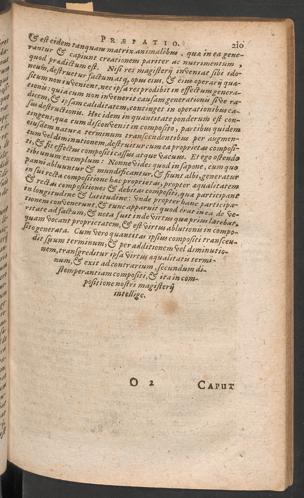 PRÆFATIO. 210
& est eidem tanquam matrix animalibus, qua in ea gene-
rantur & capiunt creationem pariter ac nutrimentum,
quod prædictum est. Nisi res magisterij inveniat sibi ido-
neum, destruetur factum atq, opus eius, & si in operarij quæ-
situm non invenient, nec ipsa res prodibit in effectum genera-
tionis: quia cum non invenerit causam generationis sive ra-
dicem, & ipsam caliditatem, continget in operationibus ca-
sus destructionis. Hoc idem in quantitate ponderum est con-
tingens, qua cum disconvenit in composito, partibus quidem
eiusdem natura terminum transcendentibus per augmen-
tum vel diminutionem, destruitur cum ea proprietas composi-
ti, & sic effectus compositi cassus atque vacuus. Et ego ostendo
tibi unum exemplum: Nonne vides quod in sapone, cum quo
panni abluuntur & mundificantur, & fiunt albi, generatur
in sui recta compositione hæc proprietas, propter æqualitatem
& rectam compositionem & debitas compositi, qua participant
in longitudine & latitudine: Unde propter hanc participa-
tionem convenerunt, & tunc apparuit quod erat in ea de ve-
ritate ad factum, & nota fuit inde virtus quæ prius latebat,
quam vocant proprietatem, & est virtus ablutionis in compo-
sito generata. Cum vero quantitas ipsius compositi transcen-
dit suum terminum, & per additionem vel diminutio-
nem, transgreditur ipsa virtus æqualitatis termi-
num, & exit ad contrarium secundum di-
stemperantiam compositi, & ita in com-
positione nostri magisterij
intellige.
O 2 CAPUT